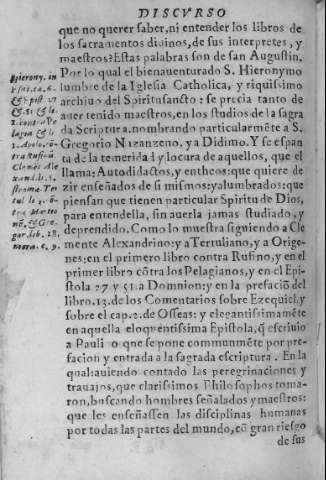 DISCVRSO
que no querer saber, ni entender los libros de
los sacramentos diuinos, de sus interpretes, y
maestros? Estas palabras son de san Augustin.
Por lo qual el bienauenturado S. Hieronymo
lumbre de la Iglesia Catholica, y riquissimo
archiuo del Spiritusancto: se precia tanto de
auer tenido maestros, en los studios de la sagra
da Scriptura. nombrando particularmẽte a S.
Gregorio Nazanzeno, y a Didimo. Y se espan
ta de la temerida l y locura de aquellos, que el
llama: Autodidactos, y entheos: que quiere de
zir enseñados de si mismos: y alumbrados: que
piensan que tienen particular Spiritu de Dios,
para entendella, sin auerla jamas studiado, y
deprendido. Como lo muestra siguiendo a Cle
mente Alexandrino: y a Tertuliano, y a Orige
nes: en el primero libro contra Rufino, y en el
primer libro cõtra los Pelagianos, y en el Epi
stola 27 y 51. a Domnion: y en la prefaciõ del
libro. 13. de los Comentarios sobre Ezequiel: y
sobre el cap. 2. de Osseas: y elegantissimamẽte
en aquella eloquentissima Epistola, q̃ escriuio
a Pauli o que se pone communmẽte por pre-
facion y entrada a la sagrada escriptura. En la
qual: auiendo contado las peregrinaciones y
trauajos, que clarissimos Philosophos toma-
ron, buscando hombres señalados y maestros:
que les enseñassen las disciplinas humanas
por todas las partes del mundo, cõ gran riesgo
de sus
Hieronym. in
& epist. 27
& 51. & li.
Clemẽs Ale